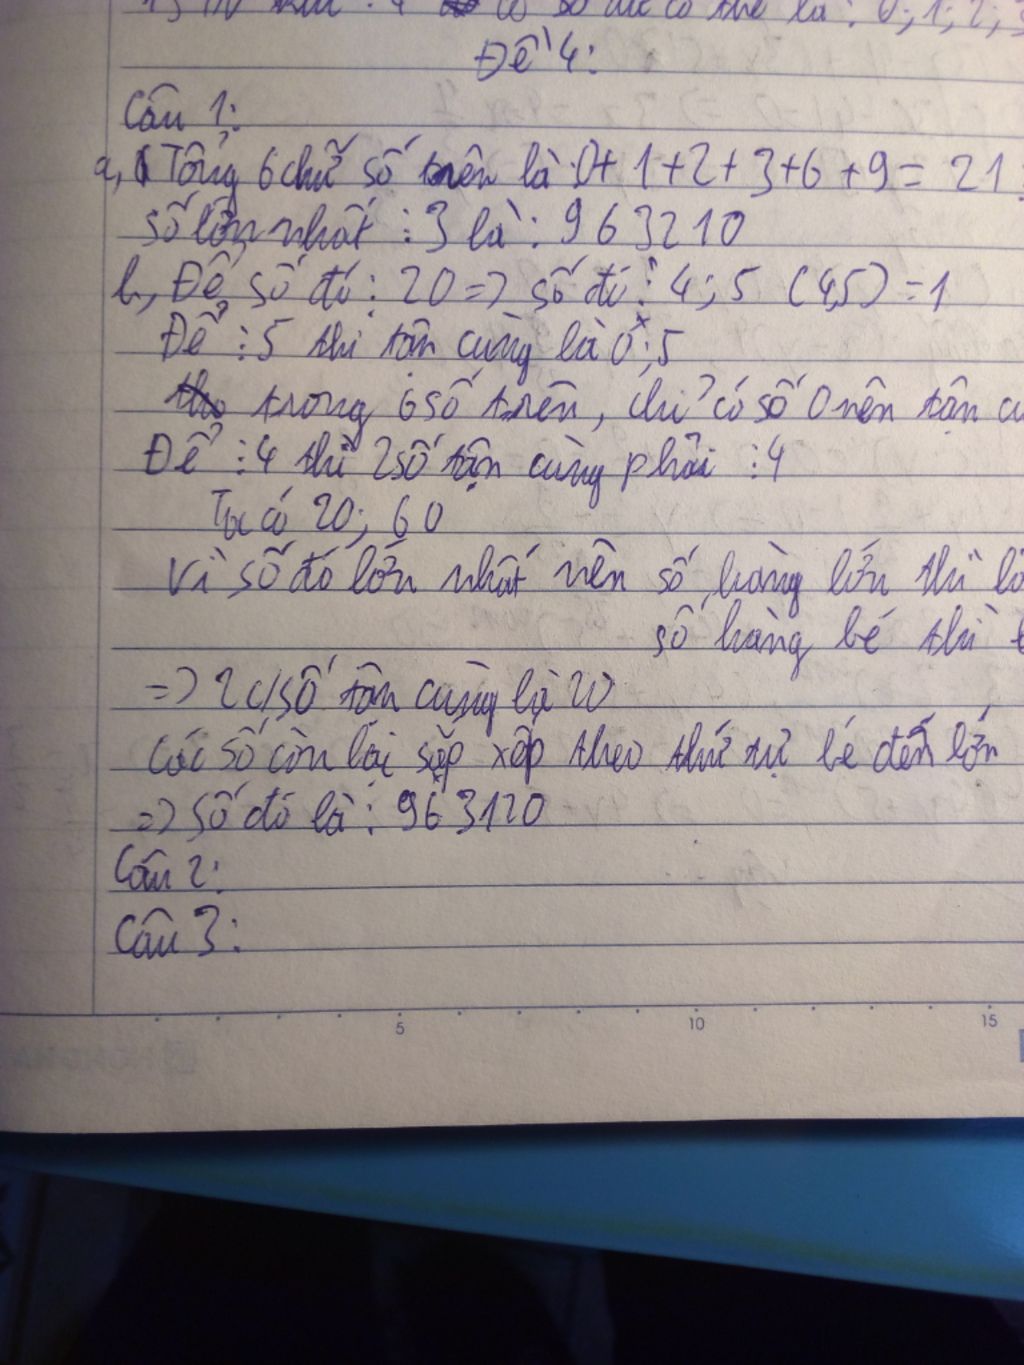 có thể là : 0 ; 1 ; 2 ; 3
Đề 4:
Câu 1:
a, Tổng 6 chữ số trên là 0 + 1 + 2 + 3 + 6 + 9 = 21 ⋮
số lớn nhất ⋮ 3 là : 963210
b, Để số đó ⋮ 20 => số đó ⋮ 4 ; 5 (4,5) = 1
Để ⋮ 5 thì tận cùng là 0 ; 5
trong 6 số trên, chỉ có số 0 nên tận
Để ⋮ 4 thì 2 số tận cùng phải ⋮ 4
Ta có 20 ; 60
Vì số đó lớn nhất nên số hàng lớn thì
số hàng bé thì
=> 2 c/số tận cùng là 20
Các số còn lại sắp xếp theo thứ tự bé đến lớn
=> Số đó là : 963120
Câu 2:
Câu 3:
5 10 15